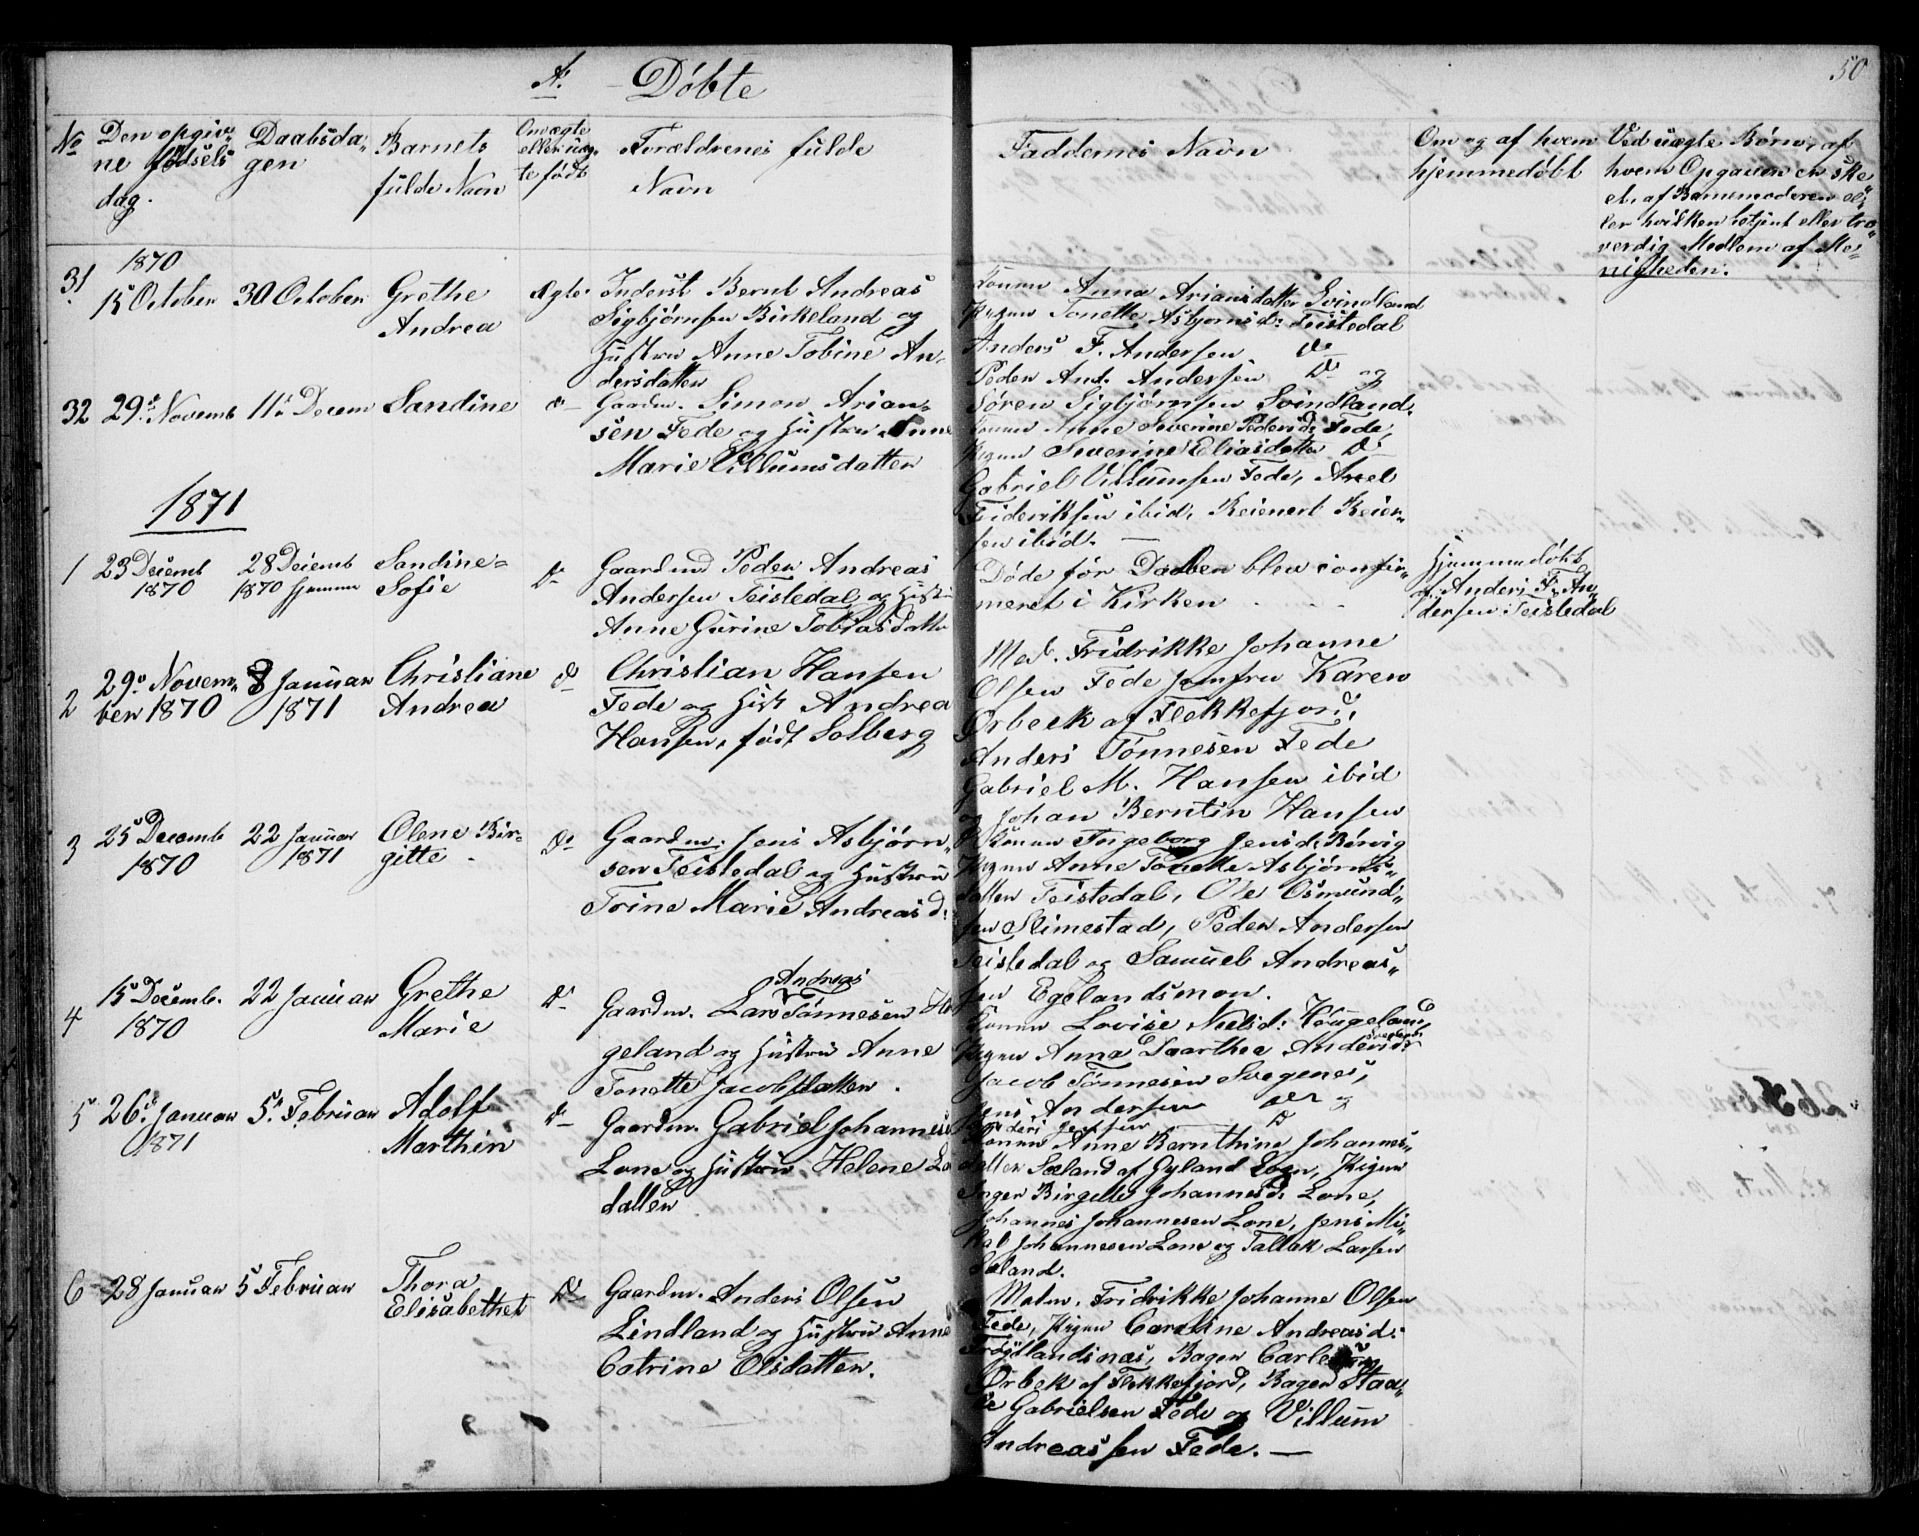 A. Døbte
50
No
Den opgiv-
ne fødsels
dag.
Daabsda-
gen
Barnets
fulde Navn
Om ægte
eller uæg-
te født
Forældrenes fulde
Navn
Faddernes Navn
Om og af hvem
hjemmedøbt
Ved uægte Børn, af
hvem Opgaven er ske-
et, af Barnemoderen el-
ler hvilken betjent eller tro-
værdig Medlem af Me-
nigheden.
1870
31
15 October
30 October
Grethe
Andrea
Ægte
Inderst Bernt Andreas
Sigbjørnsen Birkeland og
Hustru Anne Tobine An-
dersdatter
Konen Anna Ariansdatter Svindland
Pigen Tonette Asbjørnsd: Feistedal
Anders F. Andersen do
Peder And. Andersen Do og
Søren Sigbjørnsen Svindland.
32
29de Novemb
11te Decem
Sandine
do
Gaardm. Simon Arian-
sen Fede og Hustru Anne
Marie Villumsdatter
Konen Anne Severine Pedersd: Fede,
Pigen Severine Eliasdatter Do
Gabriel Villumsen Fede, Axel
Frideriksen ibid, Reienert Reier-
sen ibid. —
1871
1
23 Decemb
1870
28 Decemb
1870 Hjemme
Sandine-
Sofie
Do
Gaardmd Peder Andreas
Andersen Feistedal og Hust
Anne Gurine Tobiasdatter
Døde før Daaben blev confir-
meret i Kirken
Hjemmedøbt
af Anders F. An-
dersen Feistedal
2
29de Novem-
ber 1870
8 Januar
1871
Christiane
Andrea
Do
Christian Hansen
Fede og Hust Andrea
Hansen, født Solberg
Mad. Fridrikke Johanne
Olsen Fede Jomfru Karen
Ørbeck af Flekkefjord,
Anders Tønnesen Fede
Gabriel M. Hansen ibid
og Johan Berntin Hansen
3
25 Decemb
1870
22 Januar
1871
Olene Bir-
gitte
Do
Gaardm. Jens Asbjørn-
sen Feistedal og Hustru
Trine Marie Andreasd:
Konen Ingeborg Jensd: Rørvig
Pigen Anne Tonette Asbjørns-
datter Feistedal, Ole Osmund-
sen Slimestad, Peder Andersen
Feistedal og Samuel Andreas-
sen Egelandsmon.
4
15 Decemb.
1870
22 Januar
Grethe
Marie
Do
Andreas
Gaardm. Lars Tønnesen
geland og Hustru Anne
Tonette Jacobsdatter.
Konen Lovise Nielsd: Høugeland
Pigen Anna Daarthea Andersd:
Jacob Tønnesen Svegenes,
Jens Andersen do og
Jensen Do
5
26de Januar
1871
5te Februar
Adolf
Marthin
Do
Gaardm. Gabriel Johannes
Lone og Hustru Helene
datter
Konen Anne Bernthine Johannes-
datter Sæland af Gyland Sogn, Pigen
Inger Birgitte Johannesd: Lone,
Johannes Johannesen Lone, Jens Mi-
kal Johannesen Lone og Tallak Larsen
Sæland.
6
28 Januar
5 Februar
Thora
Elisabethet
Do
Gaardm. Anders Olsen
Lindland og Hustru Anne
Catrine Olsdatter.
Madm. Fridrikke Johanne Olsen
Fede, Pigen Caroline Andreasd:
Frøytlandsnæs, Bager Carl
Ørbek af Flekkefjord, Bager Staa-
le Gabrielsen Fede og Villum
Andreassen Fede. —